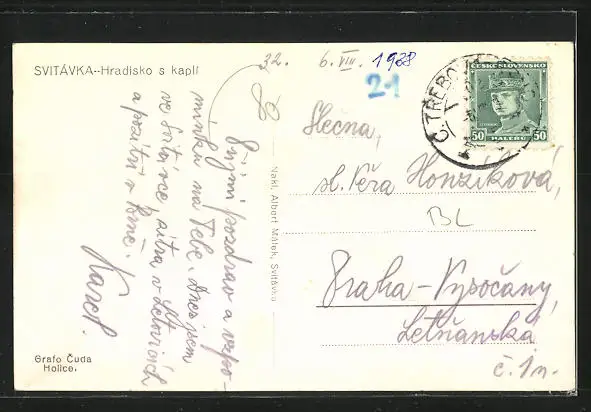 SVITÁVKA--Hradisko s kaplí
32. 6. VIII. 1938
21
Přijmi pozdrav a vzpo-
mínku na Tebe. Dnes jsem
ve Svitávce, zítra v Letovicích
a pozítří v Brně.
Karel.
Grafo Čuda
Holice.
Nakl. Albert Málek, Svitávka
ČESKOSLOVENSKO
50 HALÉŘŮ 50
Č. TŘEBOV
Slečna,
sl. Věra Honzíková,
BL
Praha-Vysočany,
Letňanská
č. 1n.